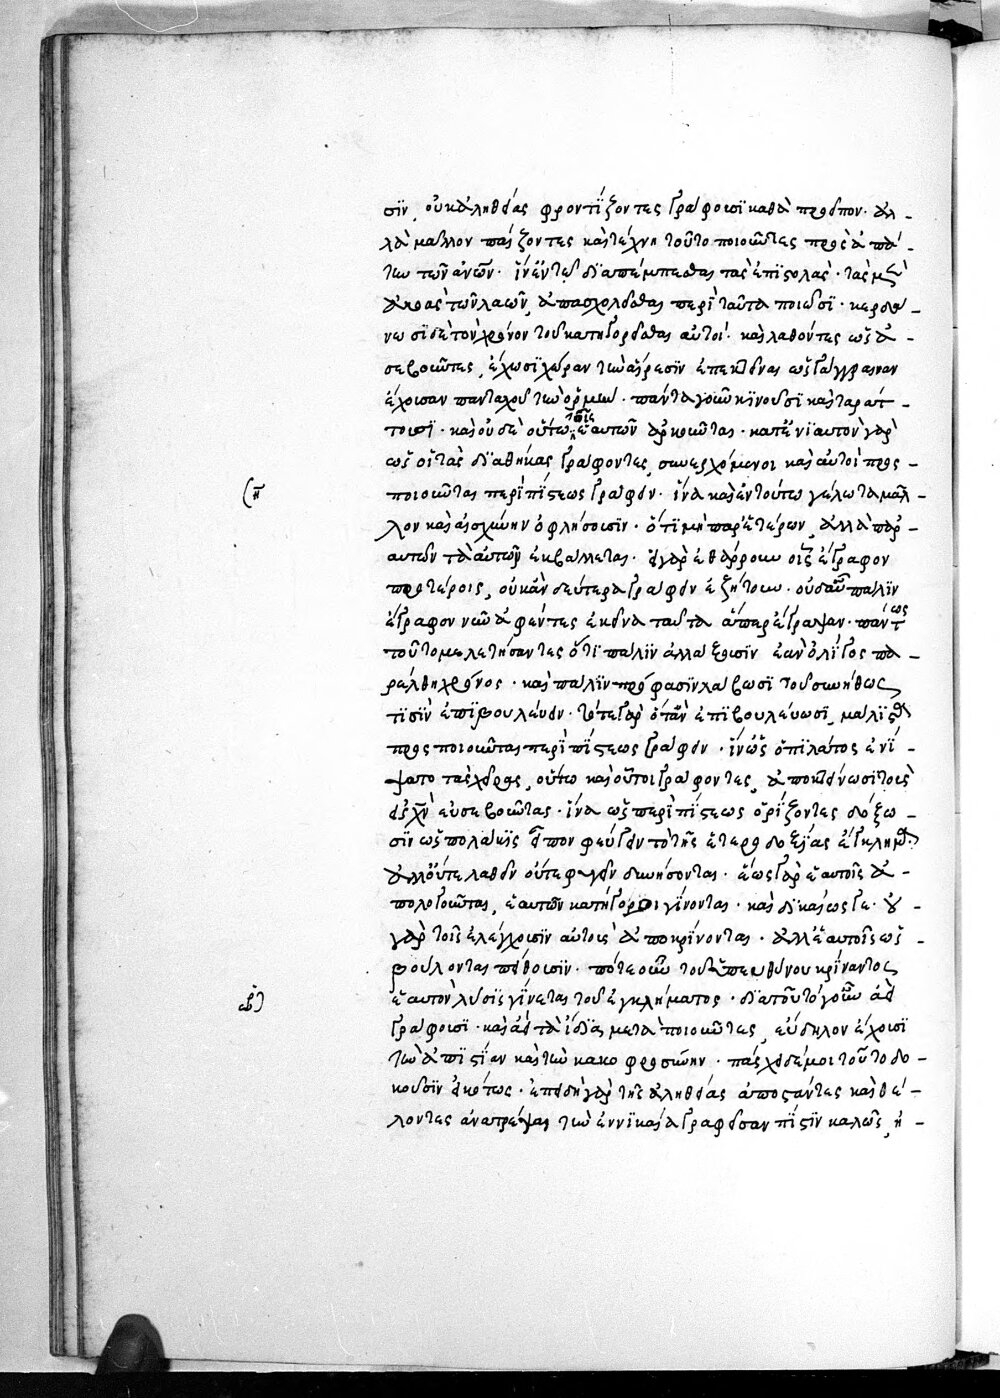 σιν, οὐκ ἀληθείας φροντίζοντες γράφουσι καθὰ πρέπον· ἀλ-
λὰ μᾶλλον παίζοντες καὶ τέχνη τοῦτο ποιοῦντες πρὸς ἀπά-
την τῶν ἀνων· ἵν' ἐν τῶ διαπέμπεσθαι τὰς ἐπιστολὰς· τὰς μὲν
ἀκοὰς τῶν λαῶν, ἀπασχολεῖσθαι περὶ ταῦτα ποιῶσι· κερδαί-
νωσι δὲ τὸν χρόνον τοῦ κατηγορεῖσθαι αὐτοί· καὶ λαθόντες ὡς ἀ-
σεβοῦντες, ἔχωσι χώραν τὴν αἵρεσιν ἐπεκτεῖναι ὡς γάγγραιναν
ἔχουσαν πανταχοῦ τὴν ὁρμὴν· πάντα γοῦν κινοῦσι καὶ ταράτ-
τουσι· καὶ οὐδὲ οὕτω τοῖς ἑαυτῶν ἀρκοῦνται· κατ' ἐνιαυτὸν γὰρ
ὡς οἱ τὰς διαθήκας γράφοντες, συνερχόμενοι καὶ αὐτοὶ προς-
(η
ποιοῦνται περὶ πίστεως γράφειν· ἵνα καὶ ἐν τούτω γέλωτα μᾶλ-
λον καὶ αἰσχύνην ὀφλήσουσιν· ὅτι μὴ παρ' ἑτέρων, ἀλλὰ παρ'
αὐτῶν τὰ αὐτῶν ἐκβάλλεται· εἰ γὰρ ἐθάρρουν οἷς ἔγραφον
προτέροις, οὐκ ἂν δεύτερα γράφειν ἐζήτουν· οὐδ' αὖ πάλιν
ἔγραφον νῦν ἀφέντες ἐκεῖνα ταῦτα ἅπερ ἔγραψαν· πάντως
τοῦτο μελετήσαντες ὅτι πάλιν ἀλλάξουσιν ἐὰν ὀλίγος πα-
ρέλθη χρόνος· καὶ πάλιν πρόφασιν λάβωσι τοῦ συνήθως
τισὶν ἐπιβουλεύειν· τότε γὰρ ὅταν ἐπιβουλεύωσι, μάλιστα
προςποιοῦνται περὶ πίστεως γράφειν· ἵν' ὡς ὁ πιλάτος ἐνί-
ψατο τὰς χεῖρας, οὕτω καὶ οὗτοι γράφοντες, ἀποκτείνωσι τοὺς
εἰς χν εὐσεβοῦντας· ἵνα ὡς περὶ πίστεως ὁρίζοντες δόξω-
σιν ὡς πολλάκις εἶπον φεύγειν τὸ τῆς ἑτεροδοξίας ἔγκλημα·
ἀλλ' οὔτε λαθεῖν οὔτε φυγεῖν δυνήσονται· ἕως γὰρ ἑαυτοῖς ἀ-
πολογοῦνται, ἑαυτῶν κατήγοροι γίνονται· καὶ δικαίως γε· οὐ
γὰρ τοῖς ἐλέγχουσιν αὐτοὺς ἀποκρίνονται· ἀλλ' ἑαυτοῖς ὡς
βούλονται πείθουσιν· πότε οὖν τοῦ ὑπευθύνου κρίναντος
ἑαυτὸν λύσις γίνεται τοῦ ἐγκλήματος· διὰ τοῦτο γοῦν ἀεὶ
γράφουσι· καὶ ἀεὶ τὰ ἴδια μεταποιοῦντες, εὔδηλον ἔχουσι
τὴν ἀπιστίαν καὶ τὴν κακοφροσύνην· πάσχειν δέ μοι τοῦτο δο-
κοῦσιν εἰκότως· ἐπειδὴ γὰρ τῆς ἀληθείας ἀποστάντες καὶ θέ-
λοντες ἀνατρέψαι τὴν ἐν νικαία γραφεῖσαν πίστιν καλῶς, ἠ-